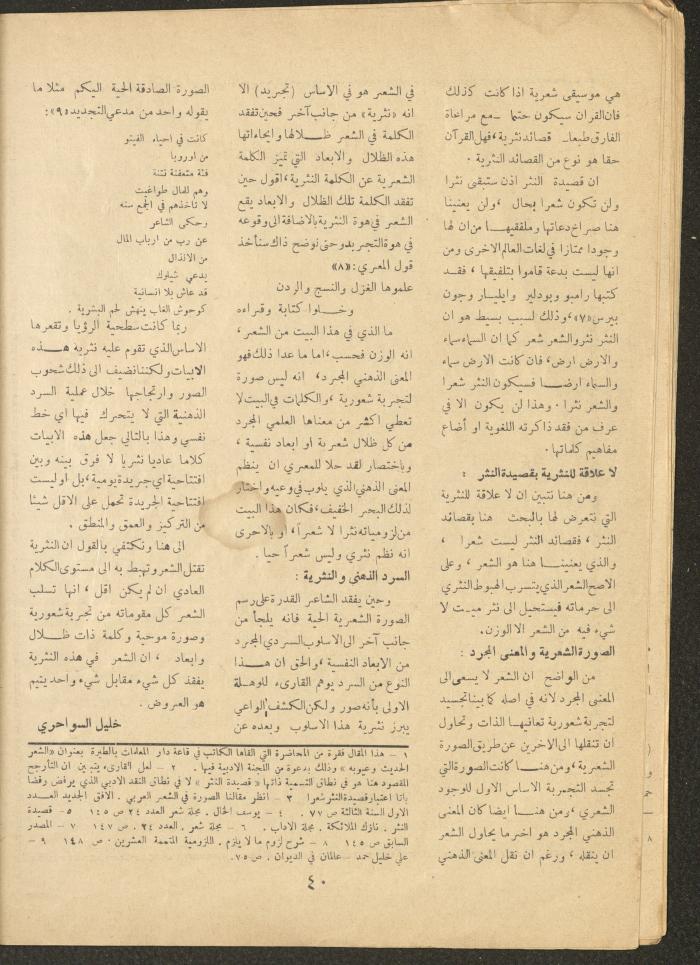 هي موسيقى شعرية اذا كانت كذلك
فان القران سيكون حتما ــ مع مراعاة
الفارق طبعا ــ قصائد نثرية ، فهل القرآن
حقا هو نوع من القصائد النثرية .
ان قصيدة النثر اذن ستبقى نثرا
ولن تكون شعرا بحال ، ولن يعنينا
هنا صراخ دعاتها وملفقيهـا من ان لها
وجودا ممتازا في لغات العالم الاخرى ومن
انها ليست بدعة قاموا بتلفيقها ، فقـد
كتبها رامبو وبودلير وايليـار وجون
بيرس «٧» ، وذلك لسبب بسيط هو ان
النثر نثر والشعر شعر كما ان السماء سماء
والارض ارض ، فان كانت الارض سماء
والسماء ارضـا فسيكون النثر شعرا
والشعر نثرا . وهذا لن يكون الا في
عرف من فقد ذاكرته اللغوية او أضاع
مفاهيم كلماتها .
لا علاقة للنثرية بقصيدة النثر :
ومن هنا نتبين ان لا علاقة للنثرية
التي نتعرض لها بالبحث هنا بقصائد
النثر ، فقصائد النثر ليست شعرا ،
والذي يعنينـا هنا هو الشعر ، وعلى
الاصح الشعر الذي يتسرب الهبوط النثري
الى حرماته فيستحيل الى نثر ميـت لا
شيء فيه من الشعر الا الوزن .
الصورة الشعرية والمعنى المجرد :
من الواضح ان الشعر لا يسعى الى
المعنى المجرد لانه في اصله كما بينا تجسيد
لتجربة شعورية تعانيهـا الذات وتحاول
ان تنقلها الى الاخرين عن طريق الصورة
الشعرية ، ومن هنـا كانت الصورة التي
تجسد التجمربة الاساس الاول للوجود
الشعري ، ومن هنـا ايضا كان المعنى
الذهني المجرد هو اخر ما يحاول الشعر
ان ينقله ، ورغم ان نقل المعنى الذهني
في الشعر هو في الاساس (تجريد) الا
انه «نثرية» من جانب آخر فحين تفقد
الكلمة في الشعر ظـلالها وايحاءاتها
هذه الظلال والابعاد التي تميز الكلمة
الشعرية عن الكلمة النثرية ، اقول حين
تفقد الكلمة تلك الظلال والابعاد يقع
الشعر في هوة النثرية بالاضافة الى وقوعه
في هوة التجريد وحتى نوضح ذاك سنأخذ
قول المعري : «٨»
علموها الغزل والنسج والردن
وخـلوا كتابة وقـراءه
ما الذي في هذا البيت من الشعر ،
انه الوزن فحسب ، اما ما عدا ذلك فهو
المعنى الذهني المجرد ، انه ليس صورة
لتجربة شعورية ، والكلمات في البيت لا
تعطي اكثر من معناها العلمي المجرد
من كل ظلال شعرية او ابعاد نفسية ،
وباختصار لقد حلا للمعري ان ينظم
المعنى الذهني الذي يلوب في وعيه واختار
لذلك البحر الخفيف ، فكان هذا البيت
من لزومياته نثرا لا شعراً ، او بالاحرى
انه نظم نثري وليس شعراً حيا .
السرد الذهني والنثرية :
وحين يفقد الشاعر القدرة على رسم
الصورة الشعرية الحية فانه يلجأ من
جانب آخر الى الاسلوب السردي المجرد
من الابعاد النفسية ، والحق ان هـذا
النوع من السرد يوهم القارىء للوهـلة
الاولى بأنه صور ولكن الكشف الواعي
يبرز نثرية هذا الاسلوب وبعده عن
الصورة الصادقة الحية اليكم مثلا ما
يقوله واحد من مدعي التجديد «٩» :
كانت في احياء الفيتو
من اوروبا
فئة متعفنة نتنة
وهم للمال طواغيت
لا تأخذهم في الجمع سنه
وحكى الشاعر
عن رب من ارباب المال
من الانذال
يدعى شيلوك
قد عاش بلا انسانية
كوحوش الغاب ينهش لحم البشرية .
ربما كانت سطحية الرؤيا وتقعرها
الاساس الذي تقوم عليه نثرية هـذه
الابيات ولكننا نضيف الى ذلك شحوب
الصور وارتجاجها خلال عملية السرد
الذهنية التي لا يتحرك فيها اي خط
نفسي وهذا بالتالي جعل هذه الابيات
كلاما عاديا نثريا لا فرق بينه وبين
افتتاحية اي جريدة يومية ، بل او ليست
افتتاحية الجريدة تحمل على الاقل شيئا
من التركيز والعمق والمنطق .
الى هنا ونكتفي بالقول ان النثرية
تقتل الشعر وتهبط به الى مستوى الكلام
العادي ان لم يكن اقل ، انها تسلب
الشعر كل مقوماته من تجربة شعورية
وصورة موحية وكلمة ذات ظـلال
وابعاد ، ان الشعر في هذه النثرية
يفقد كل شيء مقابل شيء واحد يتيم
هو العروض .
خليل السواحري
١ – هذا المقال فقرة من المحاضرة التي القاها الكاتب في قاعة دار المعلمات بالطيرة بعنوان «الشعر
الحديث وعيوبه» وذلك بدعوة من اللجنة الادبية فيها . ٢ – لعل القارىء يتبين ان التأرجح
المقصود هنا هو في نطاق التسمية ذاتها « قصيدة النثر » لا في نطاق النقد الادبي الذي يرفض رفضا
باتا اعتبار قصيدة النثر شعرا ٣ – انظر مقالنا الصورة في الشعر العربي . الافق الجديد العـدد
الاول السنة الثالثة ص ٧٧ . ٤ – يوسف الخال . مجلة شعر العدد ٢٤ ص ١٤٥ ٥ – قصيدة
النثر . نازك الملائكة . مجلة الاداب . ٦ – مجلة شعر . العدد ٢٤ . ص ١٤٧ ٧ – المصدر
السابق ص ١٤٥ ٨ – شرح لزوم ما لا يلزم . اللزومية المتممة العشرين . ص ١٤٨ ٩ –
علي خليل حمد – عالمان في الديوان . ص ٧٥ .
٤٠